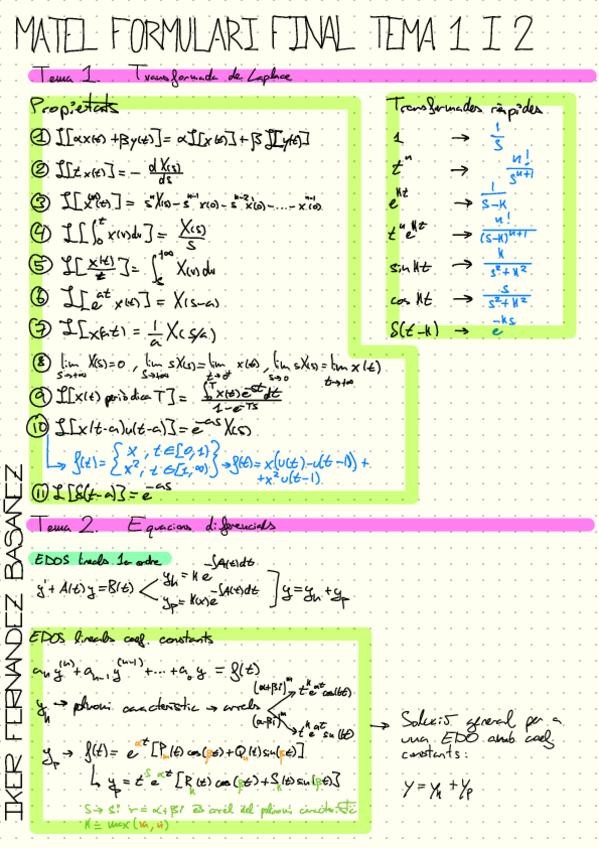 MATEL FORMULARI FINAL TEMA 1 I 2
Tema 1. Transformada de Laplace
Propietats
① L[αx(t)+βy(t)] = αL[x(t)]+βL[y(t)]
② L[t x(t)] = - dX(s)/ds
③ L[x^(n)(t)] = s^n X(s) - s^(n-1) x(0) - s^(n-2) x'(0) - ... - x^(n-1)(0)
④ L[∫_0^t x(u)du] = X(s)/s
⑤ L[x(t)/t] = ∫_s^{+∞} X(u)du
⑥ L[e^{at} x(t)] = X(s-a)
⑦ L[x(at)] = 1/a X(s/a)
⑧ lim_{s→+∞} X(s)=0, lim_{s→+∞} sX(s) = lim_{t→0^+} x(t), lim_{s→0} sX(s) = lim_{t→+∞} x(t)
⑨ L[x(t) periòdica T] = ∫_0^T x(t)e^{-st}dt / 1-e^{-Ts}
⑩ L[x(t-a)u(t-a)] = e^{-as} X(s)
↳ f(t) = { x, t∈[0,1) ; x², t∈[1,∞) } → f(t) = x(u(t)-u(t-1)) +
+x² u(t-1)
⑪ L[δ(t-a)] = e^{-as}
Transformades ràpides
1 → 1/s
t^n → n!/s^{n+1}
e^{kt} → 1/s-k
t^n e^{kt} → n!/(s-k)^{n+1}
sin kt → k/s²+k²
cos kt → s/s²+k²
δ(t-k) → e^{-ks}
Tema 2. Equacions diferencials
EDOS lineals 1er ordre
y'+A(t)y=B(t) < y_h = k e^{-∫A(t)dt} ; y_p = k(x)e^{-∫A(t)dt} ] y = y_h + y_p
EDOS lineals coef. constants
a_n y^(n) + a_{n-1} y^(n-1) + ... + a_0 y = f(t)
y_h → polinomi característic → arrels (α+βi)^m → t^k e^{αt} cos(βt) ; (α-βi)^m → t^k e^{αt} sin(βt)
y_p → f(t) = e^{αt} [P_m(t) cos(βt) + Q_n(t) sin(βt)]
↳ y_p = t^s e^{αt} [R_k(t) cos(βt) + S_k(t) sin(βt)]
S → si r = α+βi és arrel del polinomi característic
K = max(m,n)
→ Solució general per a
una EDO amb coef.
constants:
y = y_h + y_p
IKER FERNANDEZ BASAÑEZ